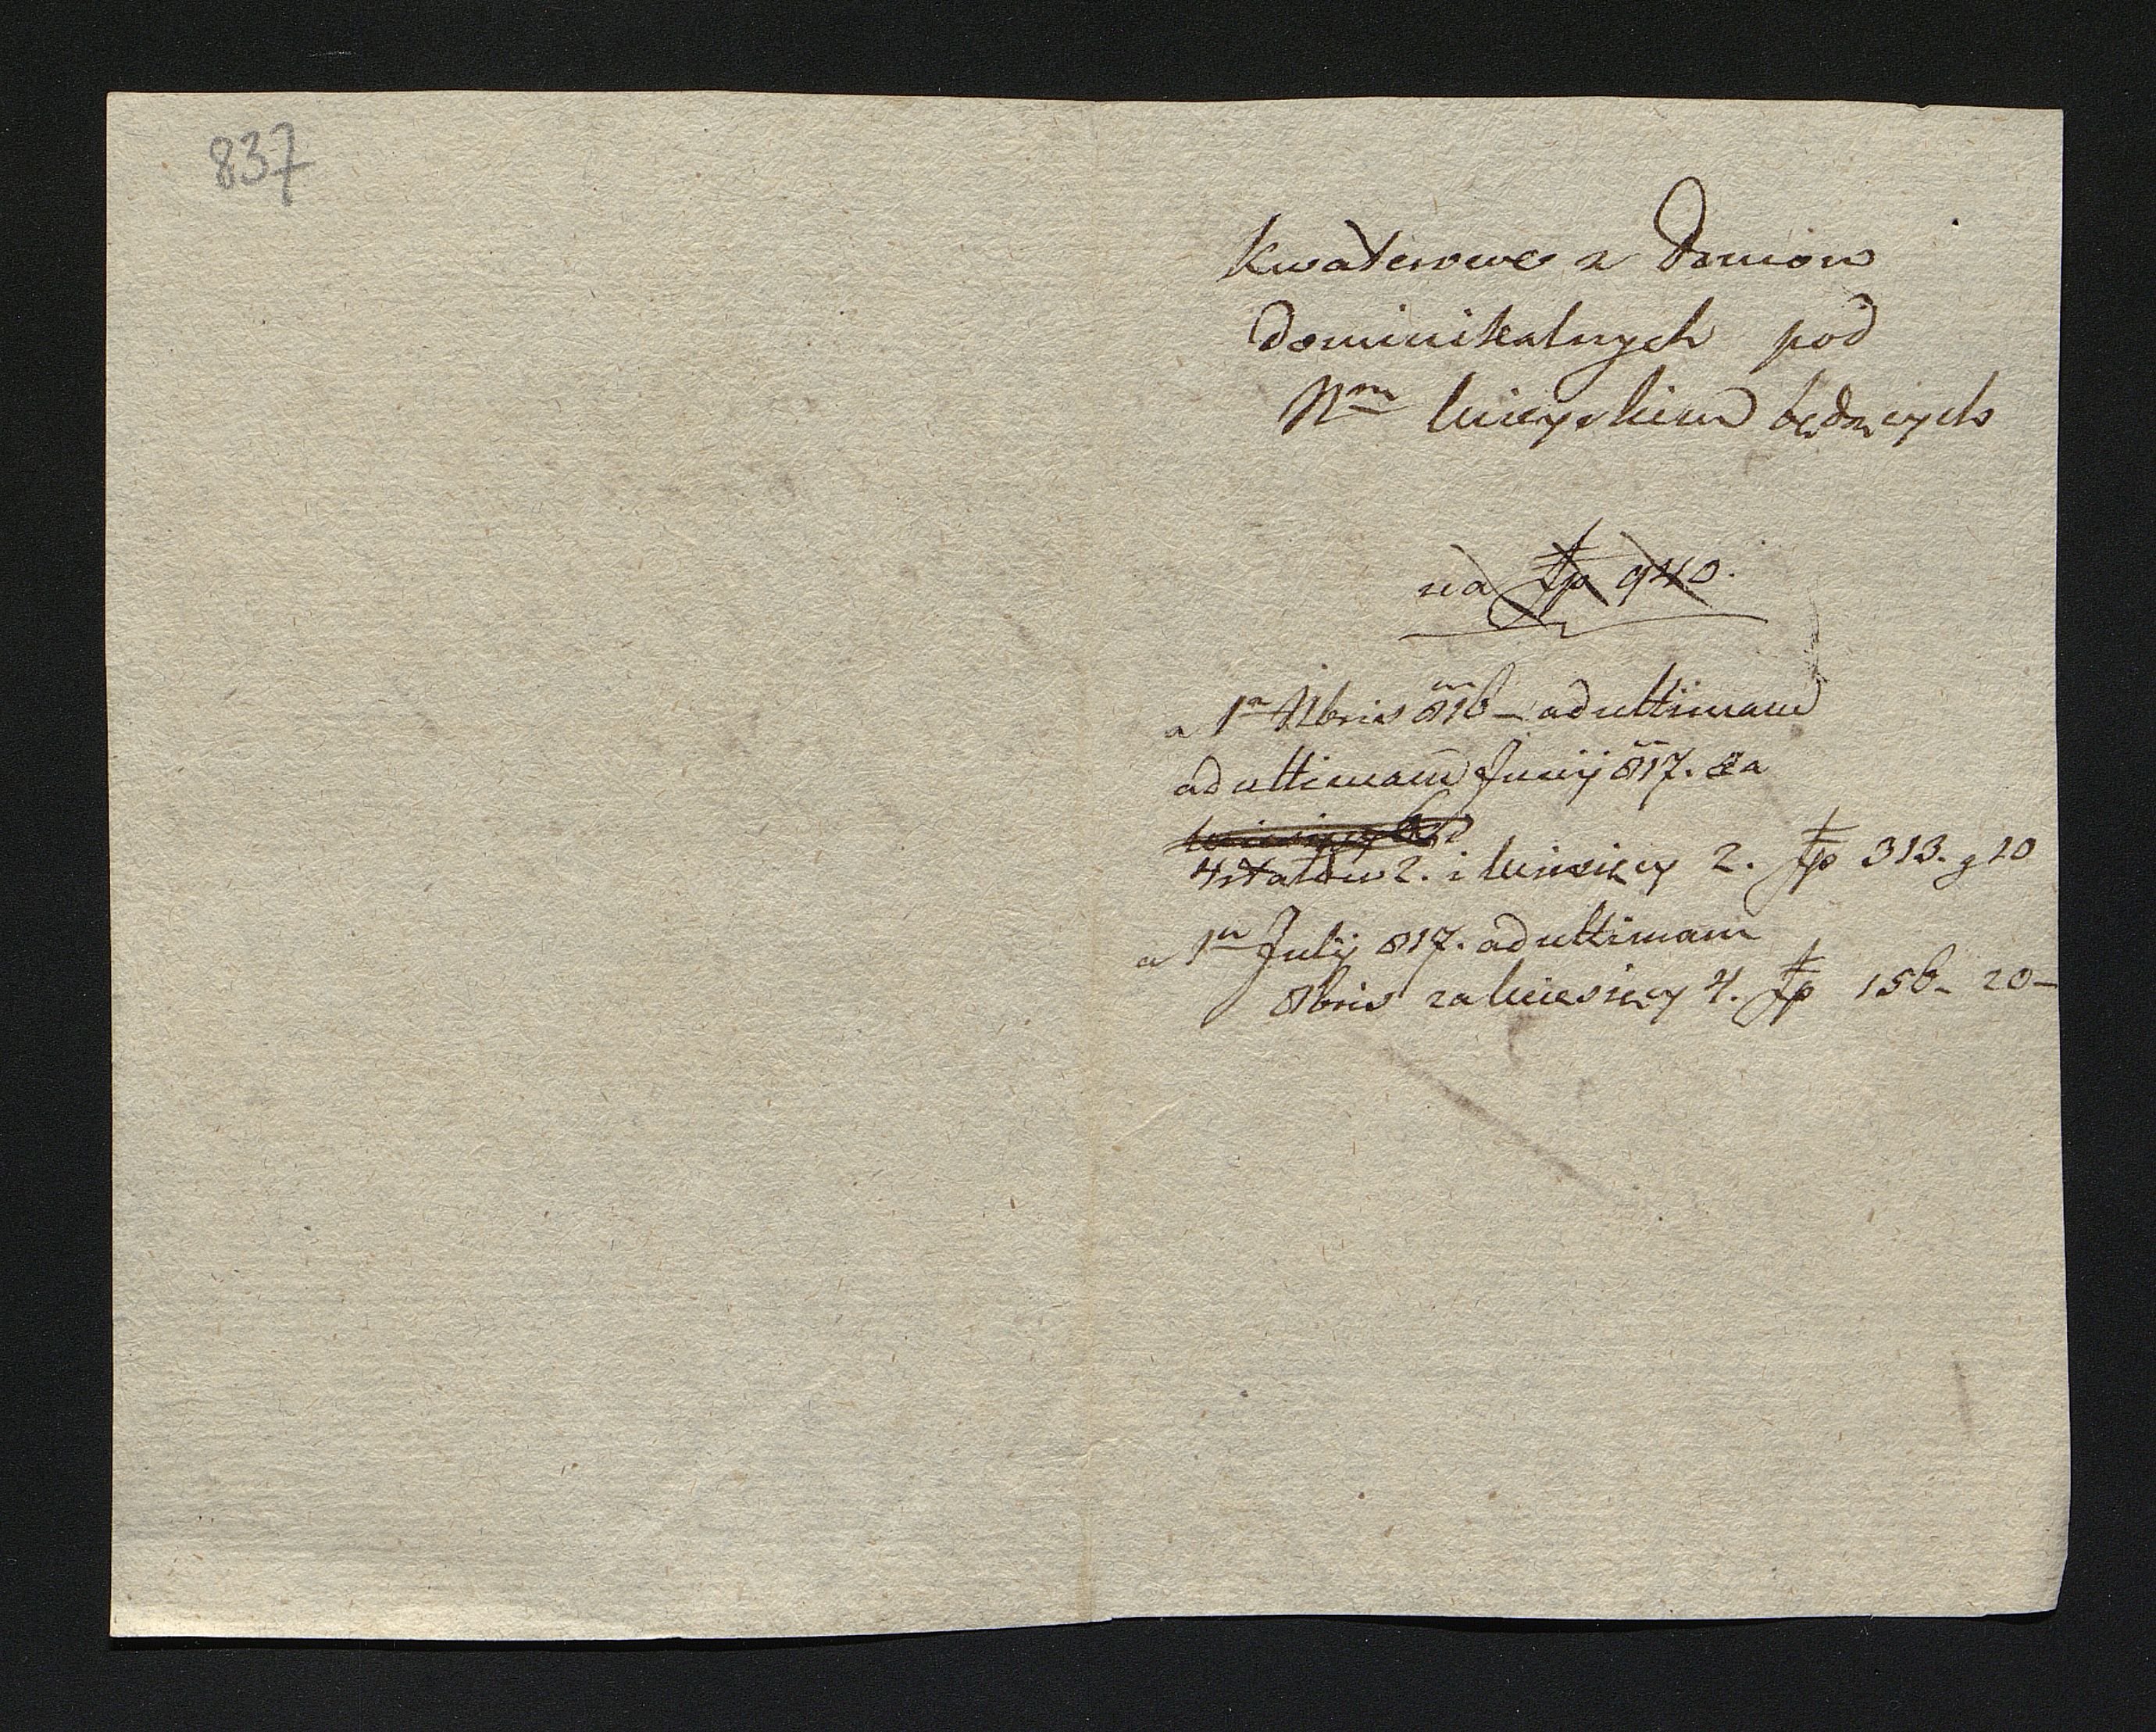 837
Kwaterowe z Domow
Dominikalnych pod
Nrm mieyskim będących
na fp 940.
a 1a 9bris 816 – ad ultimam
ad ultimam Junij 817. za
miesięcy
4rtałow 2. i miesięcy 2. fp 313. g 10
a 1a Julij 817. ad ultimam
8bris za miesięcy 4. fp 156 – 20 –